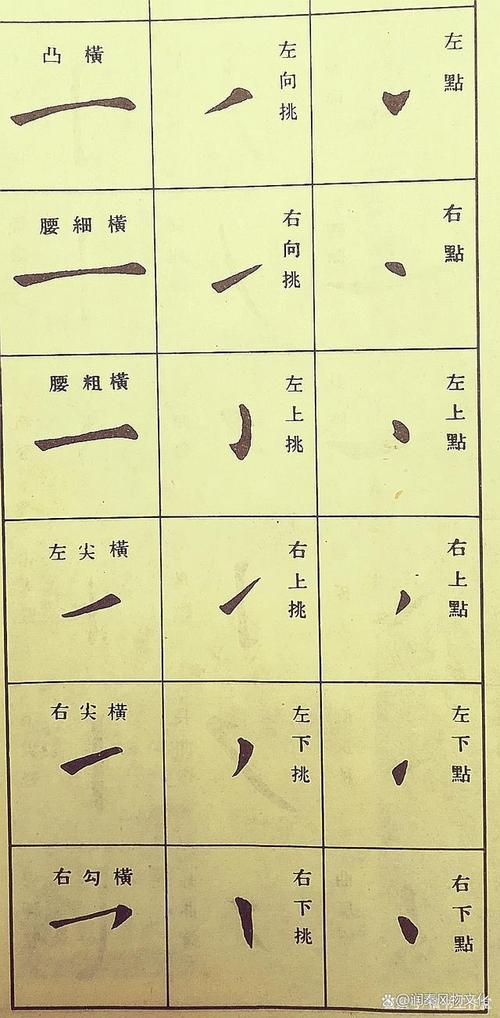 左點
右點
左上點
右上點
左下點
右下點
左向挑
右向挑
左上挑
右上挑
左下挑
右下挑
凸橫
腰細橫
腰粗橫
左尖橫
右尖橫
右勾橫
@润秦风物文化